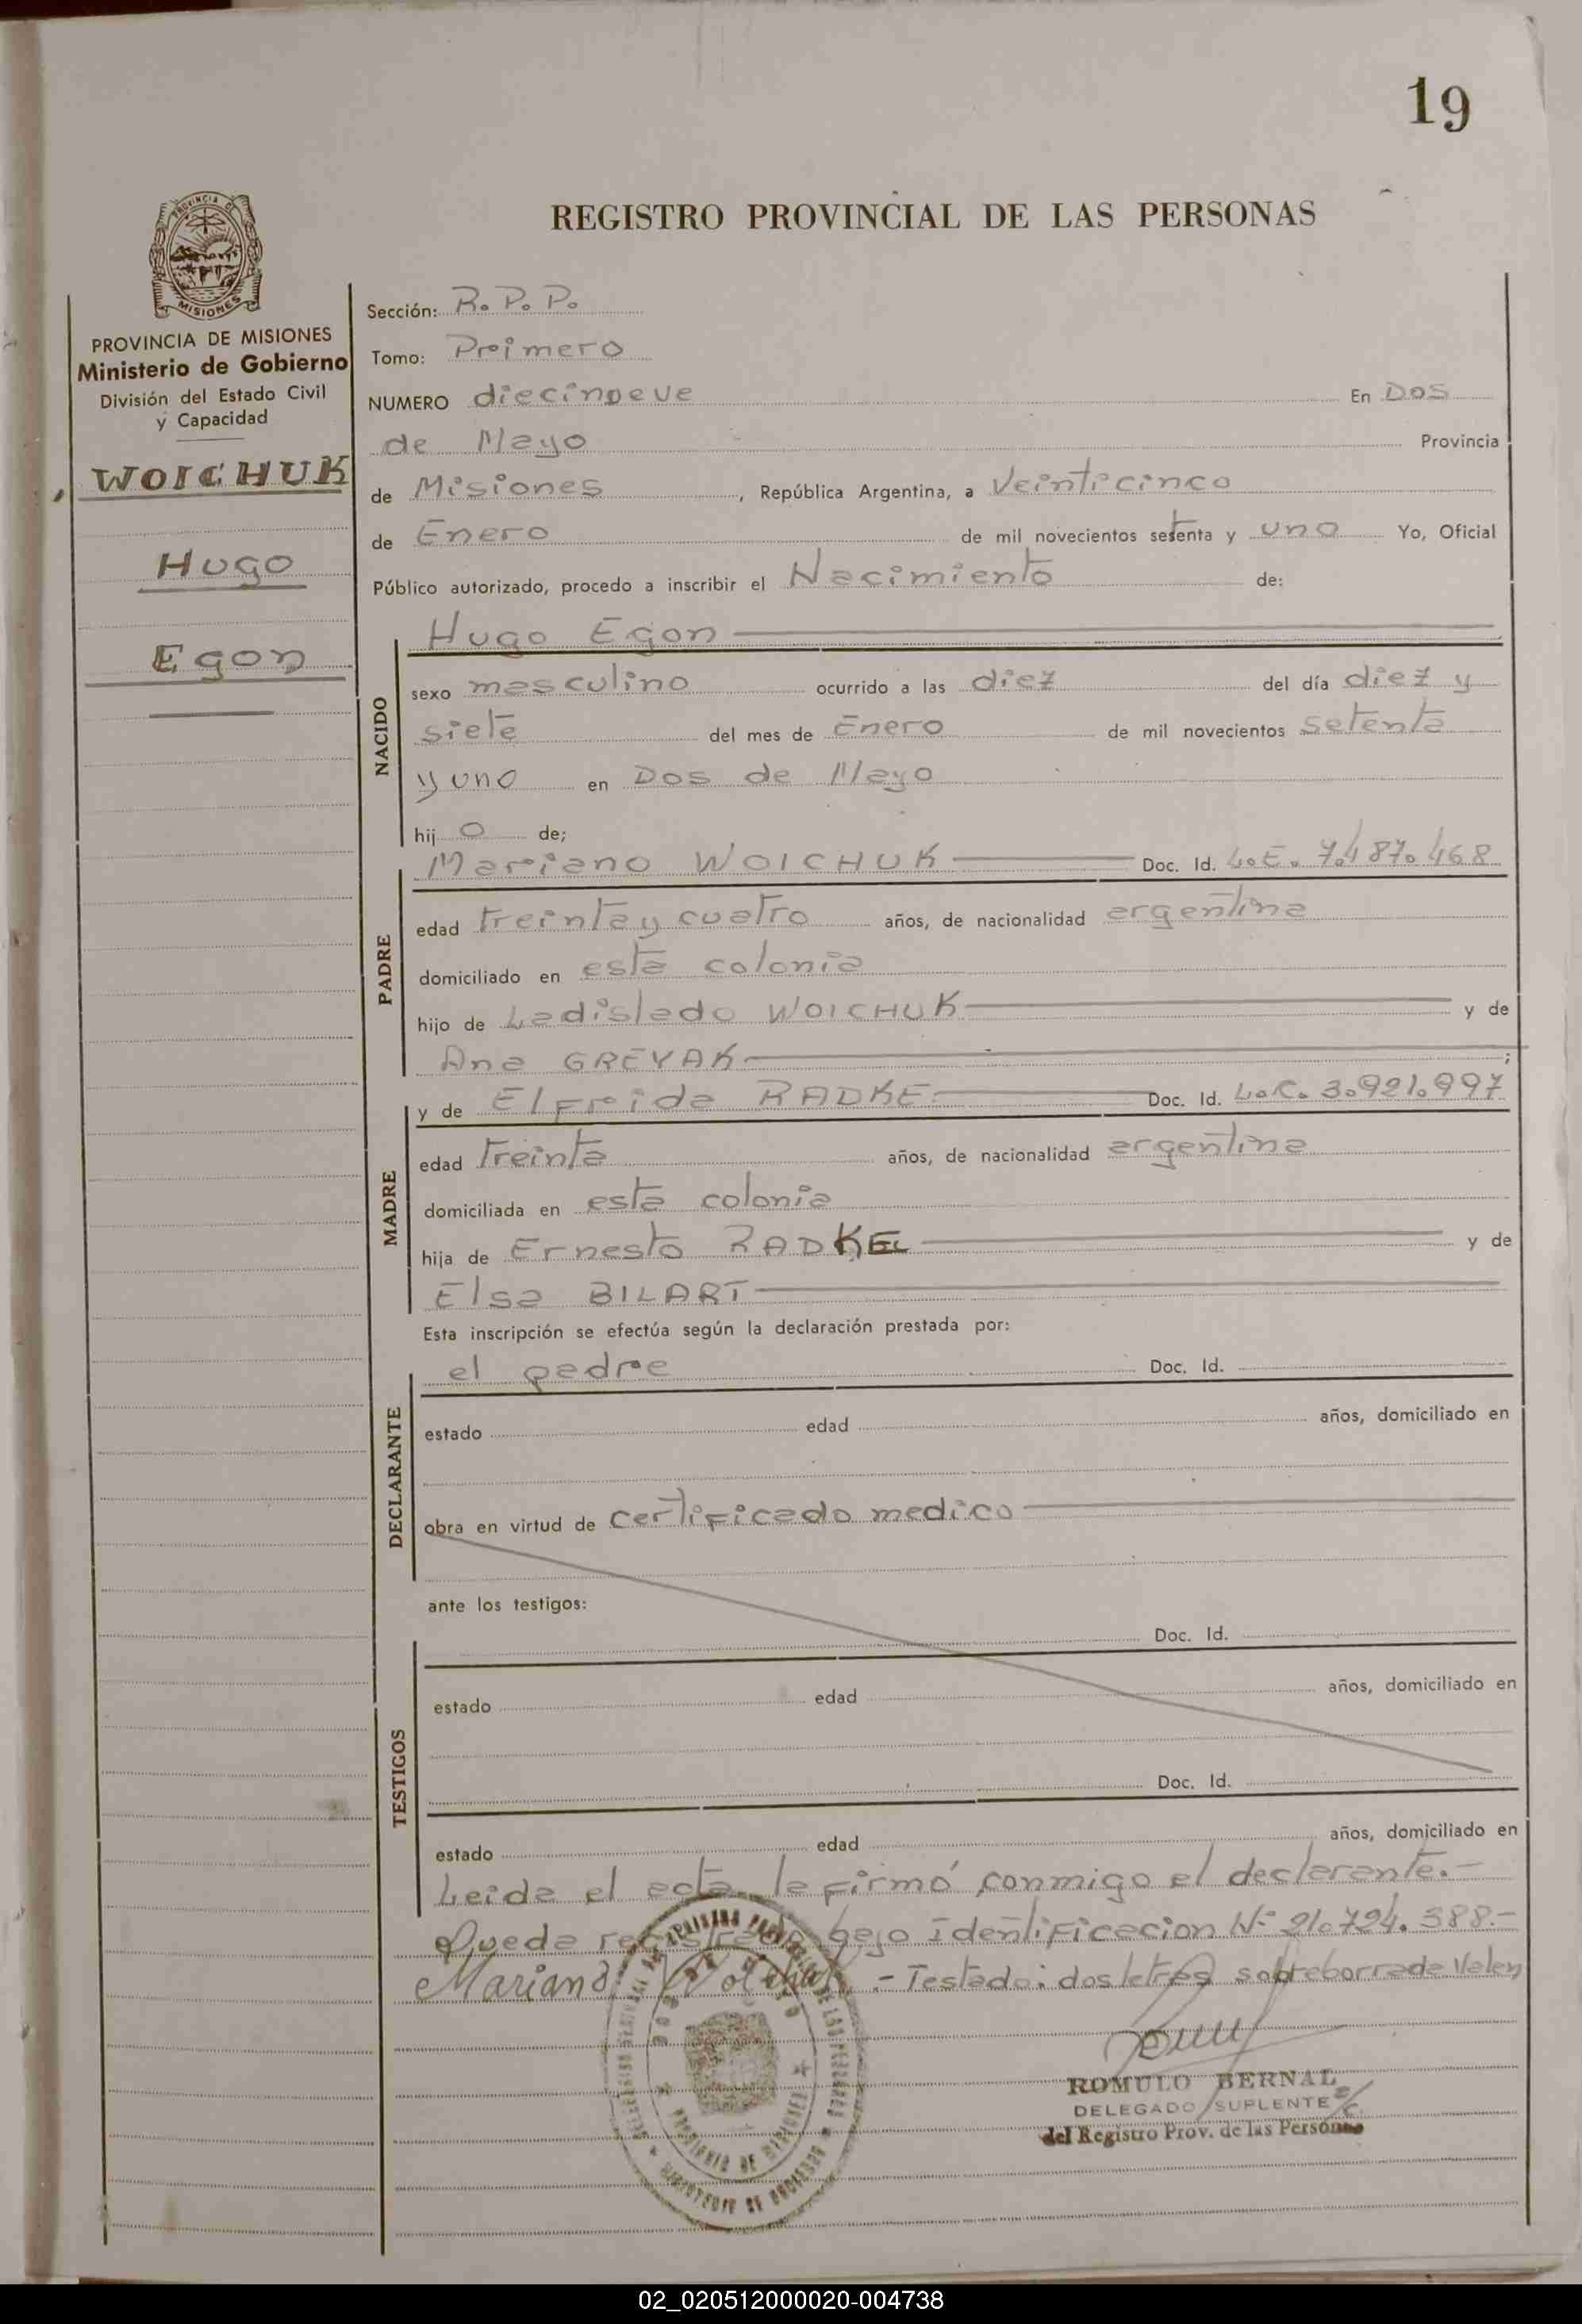 19
REGISTRO PROVINCIAL DE LAS PERSONAS
PROVINCIA DE MISIONES
Ministerio de Gobierno
División del Estado Civil
y Capacidad
WOICHUK
Hugo
Egon
Sección: R. P. P.
Tomo: Primero
NUMERO diecinueve En Dos
de Mayo Provincia
de Misiones, República Argentina, a Veinticinco
de Enero de mil novecientos setenta y uno Yo, Oficial
Público autorizado, procedo a inscribir el Nacimiento de:
NACIDO
Hugo Egon
sexo masculino ocurrido a las diez del día diez y
siete del mes de Enero de mil novecientos setenta
y uno en Dos de Mayo
hij o de;
PADRE
Mariano WOICHUK Doc. Id. L.E. 7.487.468
edad treinta y cuatro años, de nacionalidad argentina
domiciliado en esta colonia
hijo de Ladislado WOICHUK y de
Ana GREVAK ;
MADRE
y de Elfrida RADKE Doc. Id. L.C. 3.921.997
edad treinta años, de nacionalidad argentina
domiciliada en esta colonia
hija de Ernesto RADKE y de
Elsa BILART
Esta inscripción se efectúa según la declaración prestada por:
DECLARANTE
el padre Doc. Id.
estado edad años, domiciliado en
obra en virtud de certificado medico
ante los testigos:
TESTIGOS
Doc. Id.
estado edad años, domiciliado en
Doc. Id.
estado edad años, domiciliado en
Leida el acta, la firmó conmigo el declarante.-
Queda registrado bajo identificacion Nº 21.724.388.-
Mariano Woichuk - Testado: dos letras sobreborrado Valen
ROMULO BERNAL
DELEGADO SUPLENTE
del Registro Prov. de las Personas
DOS DE MAYO
PROVINCIA DE MISIONES
02_020512000020-004738